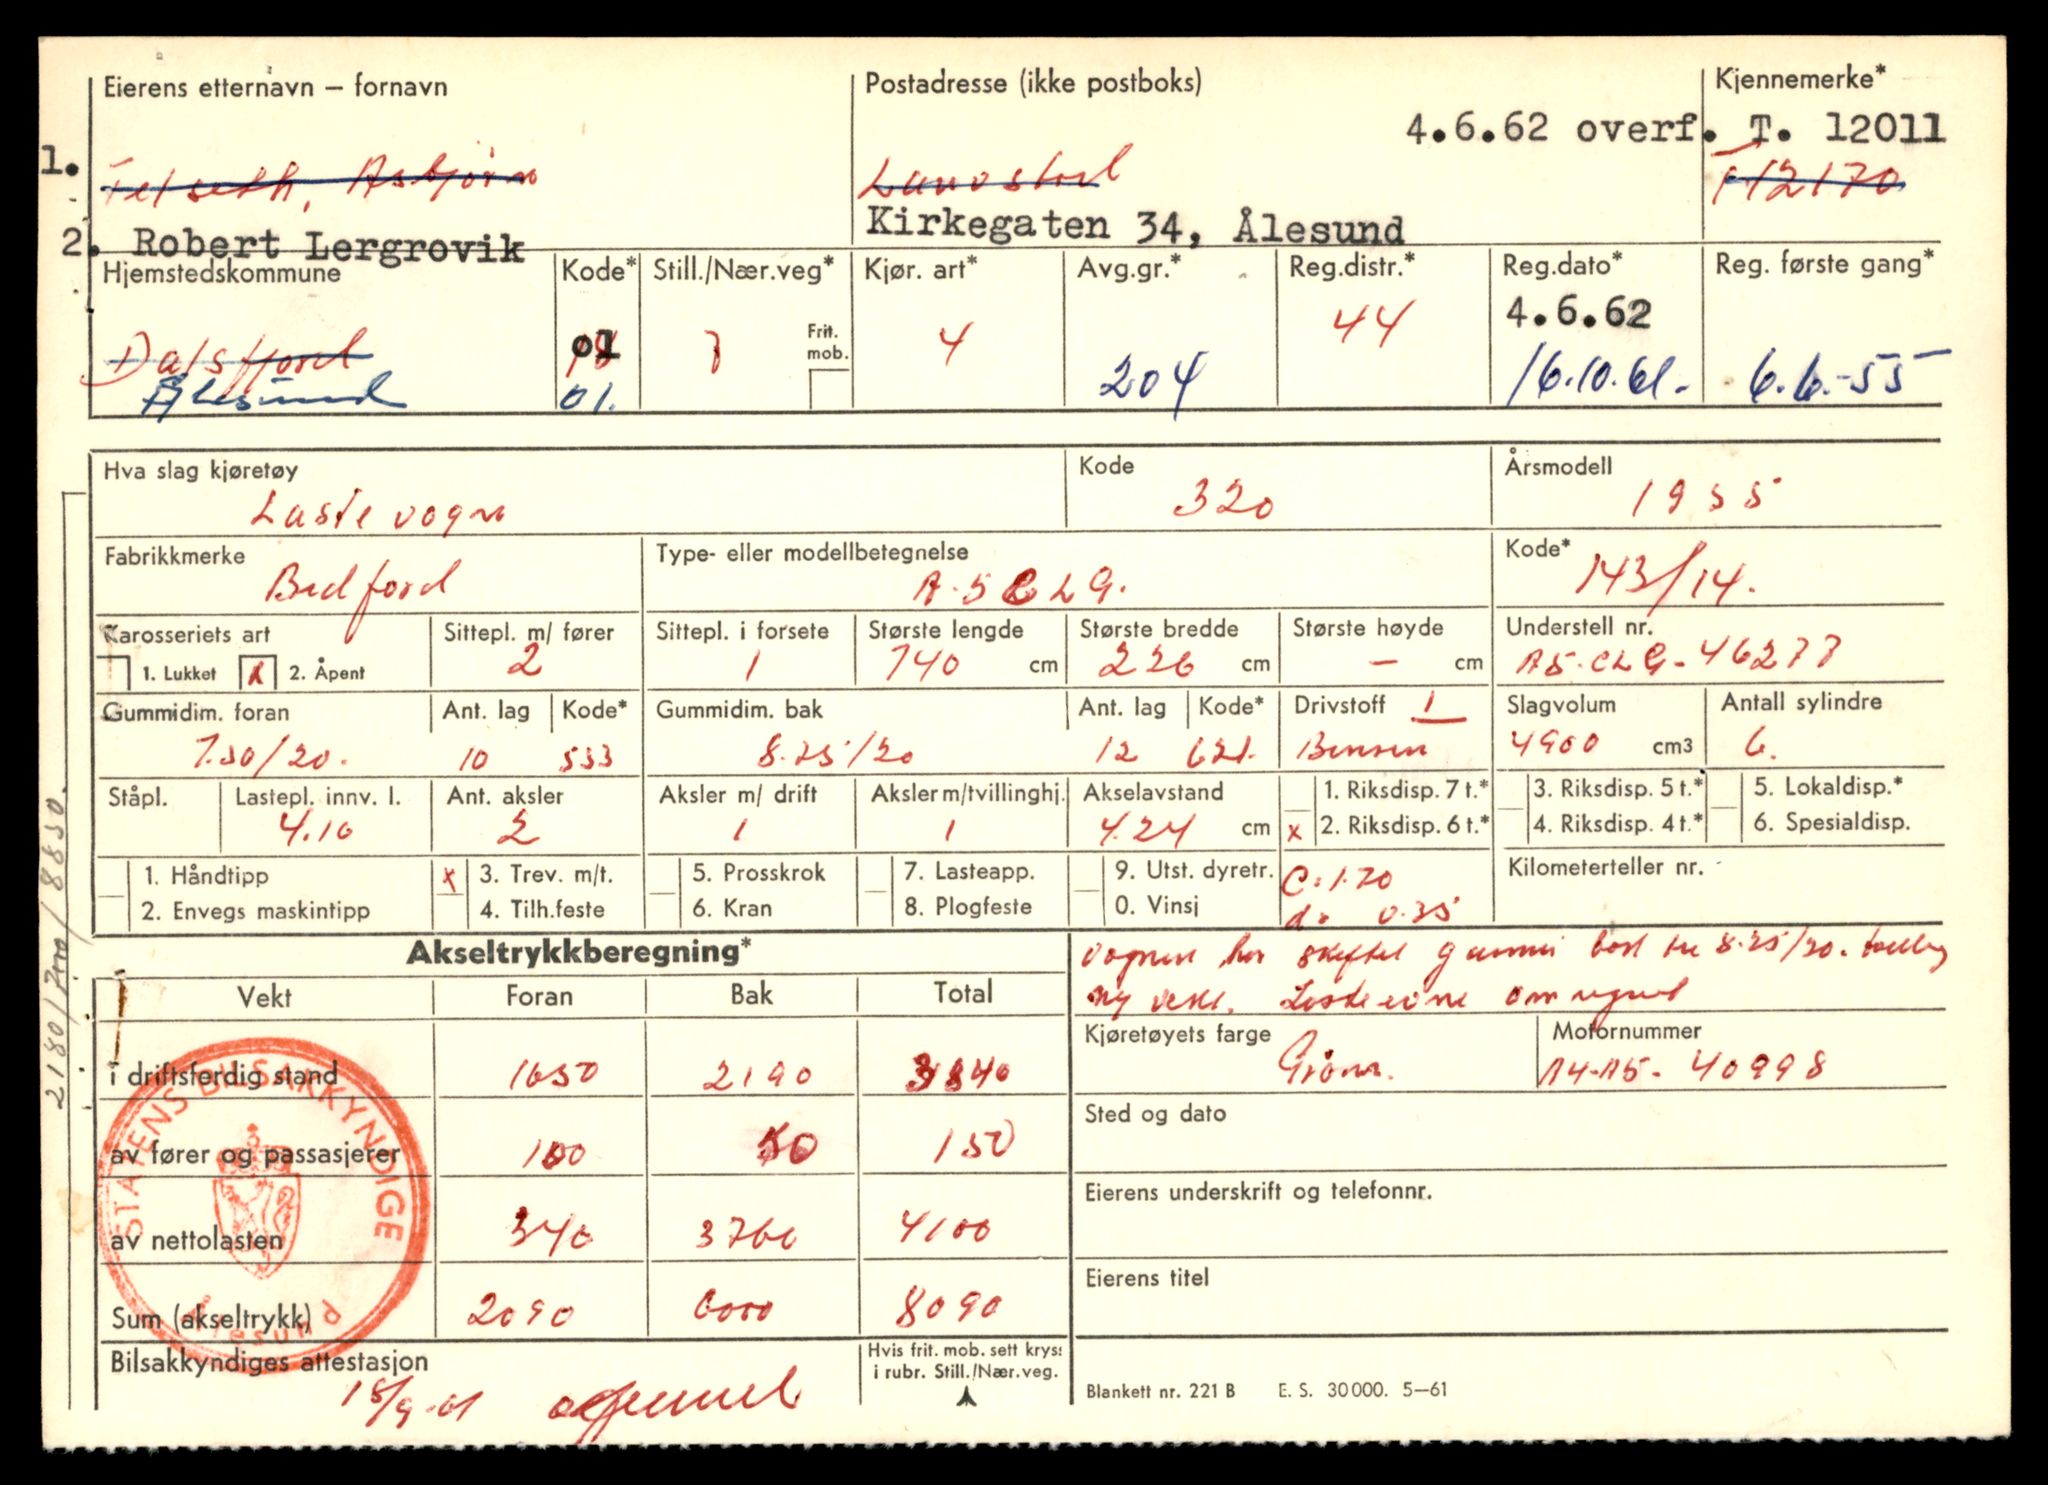 Eierens etternavn – fornavn
Postadresse (ikke postboks)
Kjennemerke*
4.6.62 overf. T. 12011
1. Felseth, Asbjørn
T 12170
2. Robert Lergrovik
Kirkegaten 34, Ålesund
Hjemstedskommune
Kode*
Still./Nær.veg*
Kjør. art*
Avg.gr.*
Reg.distr.*
Reg.dato*
Reg. første gang*
Dalsfjord
01
7
Frit. mob.
4
204
44
4.6.62
Ålesund
01.
16.10.61.
6.6.-55
Hva slag kjøretøy
Kode
Årsmodell
Lastevogn
320
1955
Fabrikkmerke
Type- eller modellbetegnelse
Kode*
Bedford
A.5CLG.
143/14.
Karosseriets art
Sittepl. m/ fører
Sittepl. i forsete
Største lengde
Største bredde
Største høyde
Understell nr.
1. Lukket
x 2. Åpent
2
1
740 cm
226 cm
– cm
A5.CLG-46277
Gummidim. foran
Ant. lag
Kode*
Gummidim. bak
Ant. lag
Kode*
Drivstoff 1
Slagvolum
Antall sylindre
7.50/20.
10
533
8.25/20
12
621.
Bensin
4900 cm3
6.
Ståpl.
Lastepl. innv. l.
Ant. aksler
Aksler m/ drift
Aksler m/tvillinghj.
Akselavstand
1. Riksdisp. 7 t.*
3. Riksdisp. 5 t.*
5. Lokaldisp.*
4.10
2
1
1
4.24 cm
x 2. Riksdisp. 6 t.*
4. Riksdisp. 4 t.*
6. Spesialdisp.
1. Håndtipp
x 3. Trev. m/t.
5. Prosskrok
7. Lasteapp.
9. Utst. dyretr.
C = 1.70
Kilometerteller nr.
2. Envegs maskintipp
4. Tilh.feste
6. Kran
8. Plogfeste
0. Vinsj
d = 0.35
2180/7000/8830.
Akseltrykkberegning*
Vognen har skiftet gummi bak til 8.25/20.
ny vekt. Lasteevne omregnet
Vekt
Foran
Bak
Total
Kjøretøyets farge
Motornummer
i driftsferdig stand
1650
2190
3840
Grønn.
A4-A5- 40998
av fører og passasjerer
100
50
150
Sted og dato
av nettolasten
340
3760
4100
Eierens underskrift og telefonnr.
Sum (akseltrykk)
2090
6000
8090
Eierens titel
STATENS BILSAKKYNDIGE
Ålesund
Bilsakkyndiges attestasjon
Hvis frit. mob. sett kryss
i rubr. Still./Nær.veg.
18/9-61
Blankett nr. 221 B E. S. 30000. 5–61